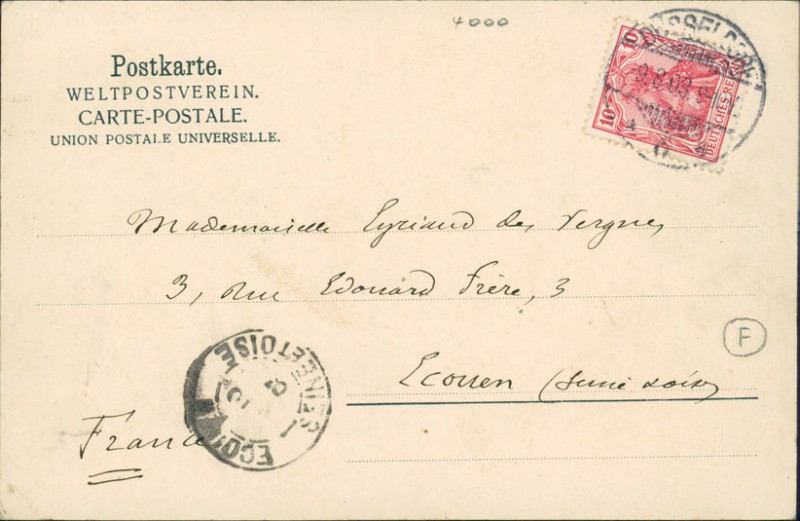 4000
Postkarte.
WELTPOSTVEREIN.
CARTE-POSTALE.
UNION POSTALE UNIVERSELLE.
10
10
DEUTSCHES
Mademoiselle Eyriaud des Vergnes
3, Rue Edouard Frère, 3
F
Ecouen (Seine & Oise)
France
SEINE ET OISE